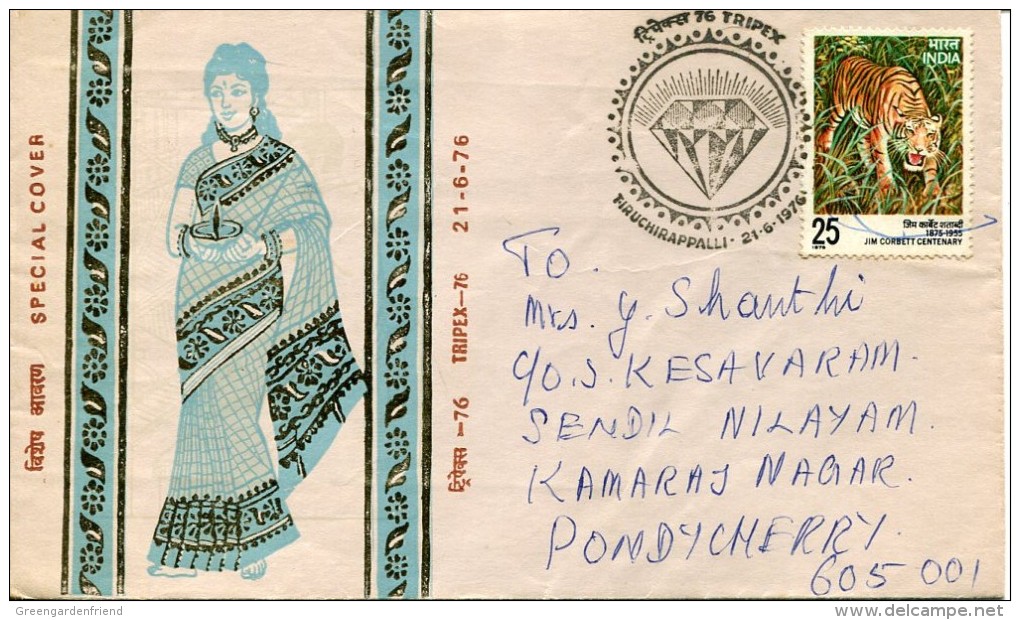 विशेष आवरण SPECIAL COVER
ट्रिपेक्स-76 TRIPEX-76 21-6-76
ट्रिपेक्स 76 TRIPEX
TIRUCHIRAPPALLI · 21-6-1976
भारत
INDIA
25
1976
जिम कार्बेट शताब्दी
1875-1955
JIM CORBETT CENTENARY
TO.
Mrs. Y. Shanthi
C/O. S. KESAVARAM.
SENDIL NILAYAM.
KAMARAJ NAGAR.
PONDYCHERRY.
605 001
Greengardenfriend
delcampe.net